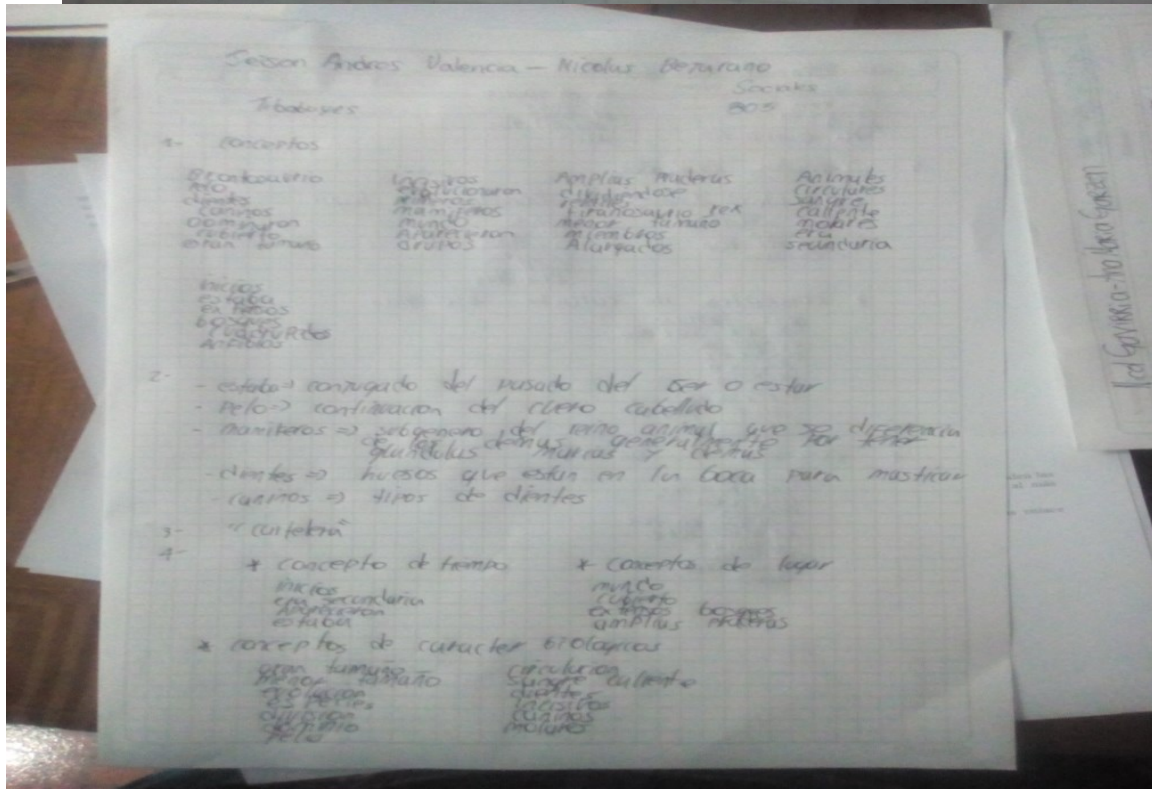 Jeison Andres Valencia - Nicolas Bejarano
Sociales
805
1- conceptos
Brontosaurio
dientes
caninos
Dominaron
cubierto
Gran tamaño
incisivos
evolucionaron
mamiferos
mundo
Aparecieron
Grupos
Amplias Praderas
dividiendose
tiranosaurio rex
menor tamaño
miembros
Alargados
Animales
circulares
sangre
caliente
molares
era
secundaria
inicios
estaba
extensos
bosques
Anfibios
2- - estaba => conjugado del pasado del ser o estar
- Pelo => continuacion del cuero cabelludo
- mamiferos => subgenero del reino animal que se diferencia
de los demas, generalmente por tener
glandulas y demas
- dientes => huesos que estan en la boca para masticar
- caninos => tipos de dientes
3- "cartelera"
4-
* concepto de tiempo
inicios
era secundaria
Aparecieron
estaba
* conceptos de lugar
mundo
cubierto
extensos bosques
amplias praderas
* conceptos de caracter biologicos
gran tamaño
menor tamaño
evolucion
especies
dominio
pelo
circulacion
sangre caliente
dientes
incisivos
caninos
molares